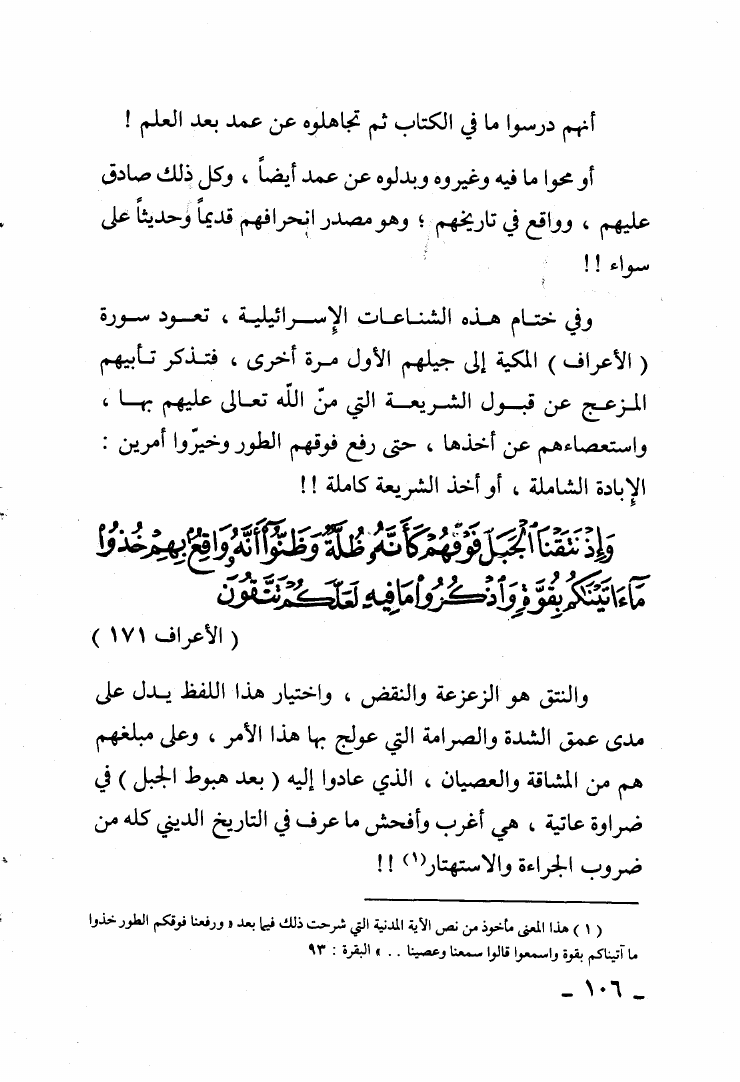 أنهم درسوا ما في الكتاب ثم تجاهلوه عن عمد بعد العلم !
أو محوا ما فيه وغيروه وبدلوه عن عمد أيضاً ، وكل ذلك صادق
عليهم ، وواقع في تاريخهم ؛ وهو مصدر انحرافهم قديماً وحديثاً على
سواء !!
وفي ختـام هـذه الشنـاعـات الإسـرائيليـة ، تعـود سـورة
( الأعراف ) المكية إلى جيلهم الأول مـرة أخرى ، فتـذكر تـأبيهم
المـزعـج عن قبـول الشريعـة التي منّ الله تعـالى عليهم بهـا ،
واستعصاءهم عن أخذها ، حتى رفع فوقهم الطور وخيّروا أمرين :
الإبادة الشاملة ، أو أخذ الشريعة كاملة !!
وَإِذْ نَتَقْنَا ٱلْجَبَلَ فَوْقَهُمْ كَأَنَّهُۥ ظُلَّةٌ وَظَنُّوٓا۟ أَنَّهُۥ وَاقِعٌۢ بِهِمْ خُذُوا۟
مَآ ءَاتَيْنَٰكُم بِقُوَّةٍ وَٱذْكُرُوا۟ مَا فِيهِ لَعَلَّكُمْ تَتَّقُونَ
( الأعراف ١٧١ )
والنتق هو الزعزعة والنقض ، واختيار هذا اللفظ يـدل على
مدى عمق الشدة والصرامة التي عولج بها هذا الأمر ، وعلى مبلغهم
هم من المشاقة والعصيان ، الذي عادوا إليه ( بعد هبوط الجبل ) في
ضراوة عاتية ، هي أغرب وأفحش ما عرف في التاريخ الديني كله من
ضروب الجراءة والاستهتار(١) !!
( ١ ) هذا المعنى مأخوذ من نص الآية المدنية التي شرحت ذلك فيما بعد « ورفعنا فوقكم الطور خذوا
ما آتيناكم بقوة واسمعوا قالوا سمعنا وعصينا . . » البقرة : ٩٣
ـ ١٠٦ ـ